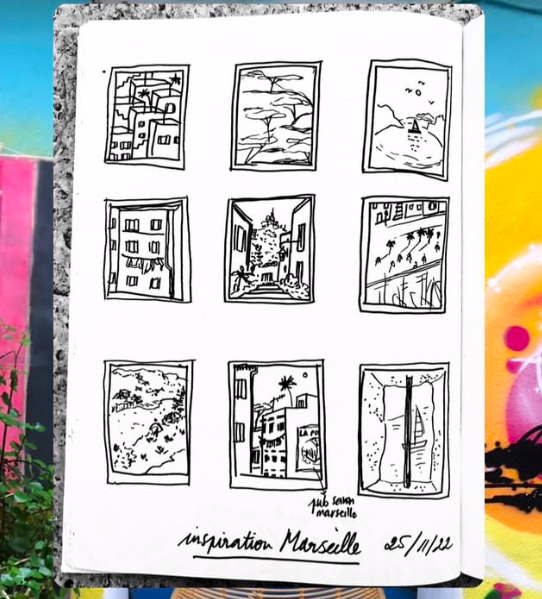 LA PO
pub savon
marseille
inspiration Marseille 25/11/22